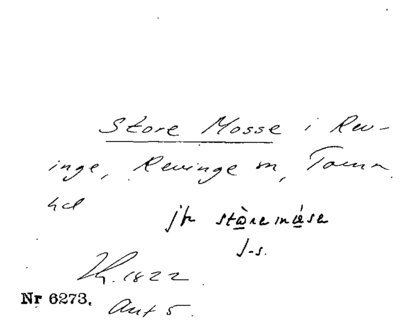 Store Mosse i Rev-
inge, Revinge sn, Torna
hd
jfr stòremåse
J-s.
1822
Nr 6273. Ant 5.